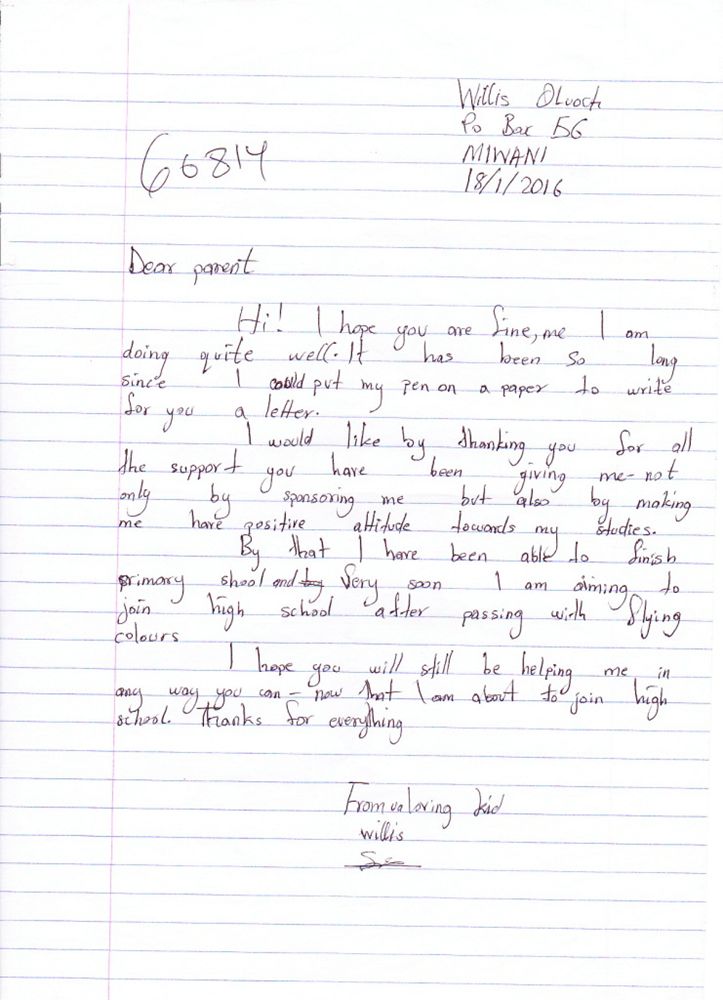 Willis Oluoch
Po Box 56
66814
MIWANI
18/1/2016
Dear parent
Hi! I hope you are fine, me I am
doing quite well. It has been so long
since I could put my pen on a paper to write
for you a letter.
I would like by thanking you for all
the support you have been giving me-not
only by sponsoring me but also by making
me have positive attitude towards my studies.
By that I have been able to finish
primary shool and by Very soon I am aiming to
join high school after passing with flying
colours
I hope you will still be helping me in
any way you can - now that I am about to join high
school. thanks for everything
From loving kid
willis